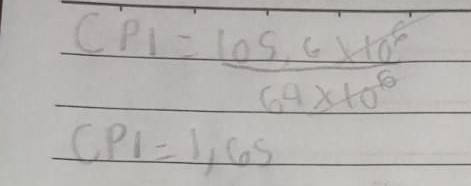 CPI = 105,6 x 10^6
64 x 10^6
CPI = 1,65